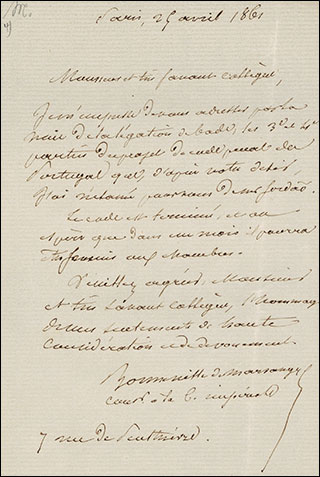 Paris, 25 avril 1861
Monsieur et très savant collègue,
Je m'empresse de vous adresser par la
voie de la légation de bade, les 3e et 4e
parties du projet de code pénal du
Portugal que, d'après votre désir
j'ai réclamé pour vous de Mr Jordaô.
Le code est terminé, et on
espère que dans un mois il pourra
être soumis aux chambres.
Veuillez agréer, Monsieur
et très savant collègue, l'hommage
de mes sentiments de haute
considération et de dévouement.
Bonneville de Marsangy
conser à la C. impériale
7 rue de Penthièvre.